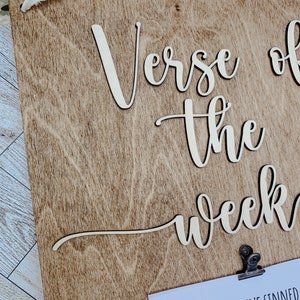 Verse of
the
week
SINNED